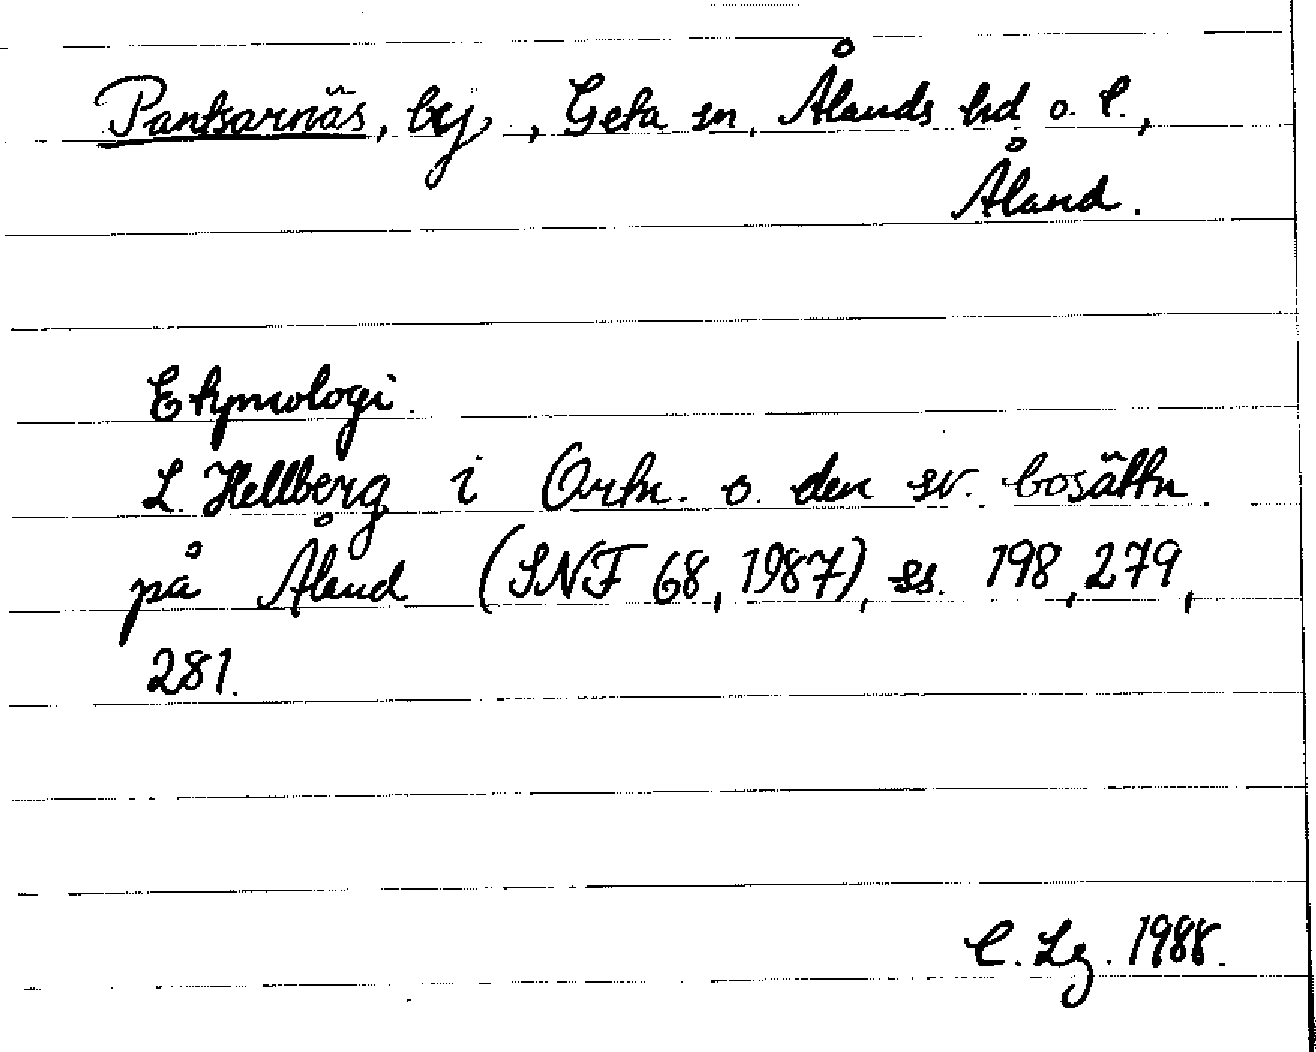 Pantsarnäs, by, Geta sn, Ålands hd o. l.,
Åland.
Etymologi.
L. Hellberg i Ortn. o. den sv. bosättn.
på Åland (SNF 68, 1987), ss. 198, 279,
281.
C. Lg. 1988.